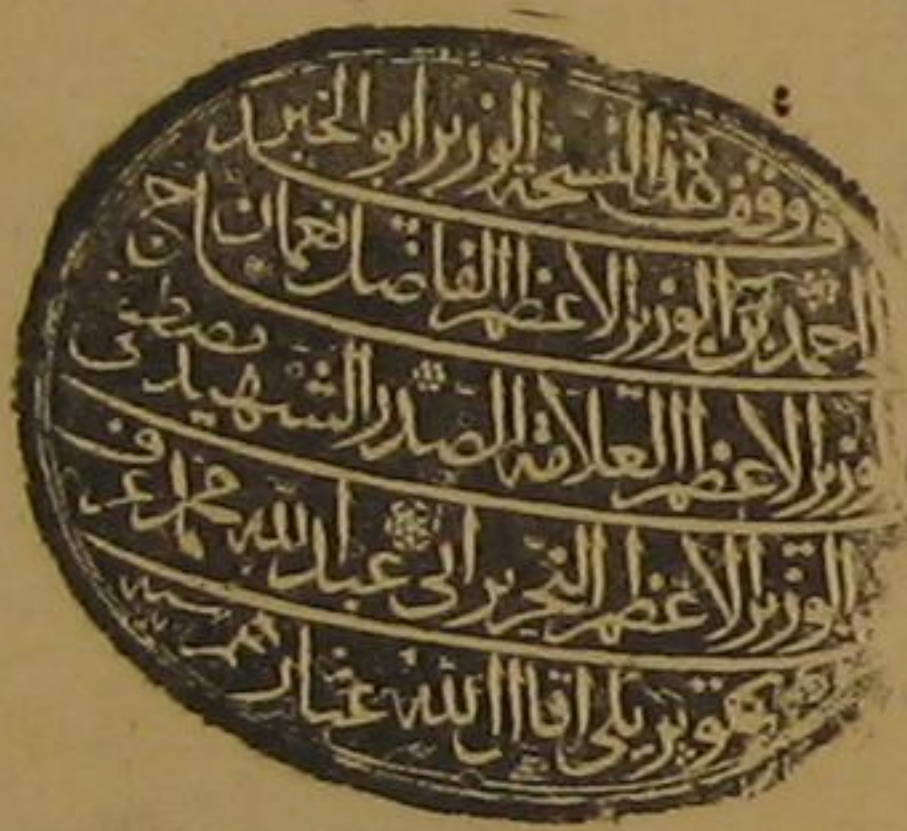 وقف هذا النسخة الوزير ابو الخير
احمد بن الوزير الاعظم الفاضل نعمان
وزير الاعظم العلامة الصدر الشهيد مصطفى
الوزير الاعظم النحرير ابي عبد الله محمد عرف
بكوبريلي اقال الله عثارهم